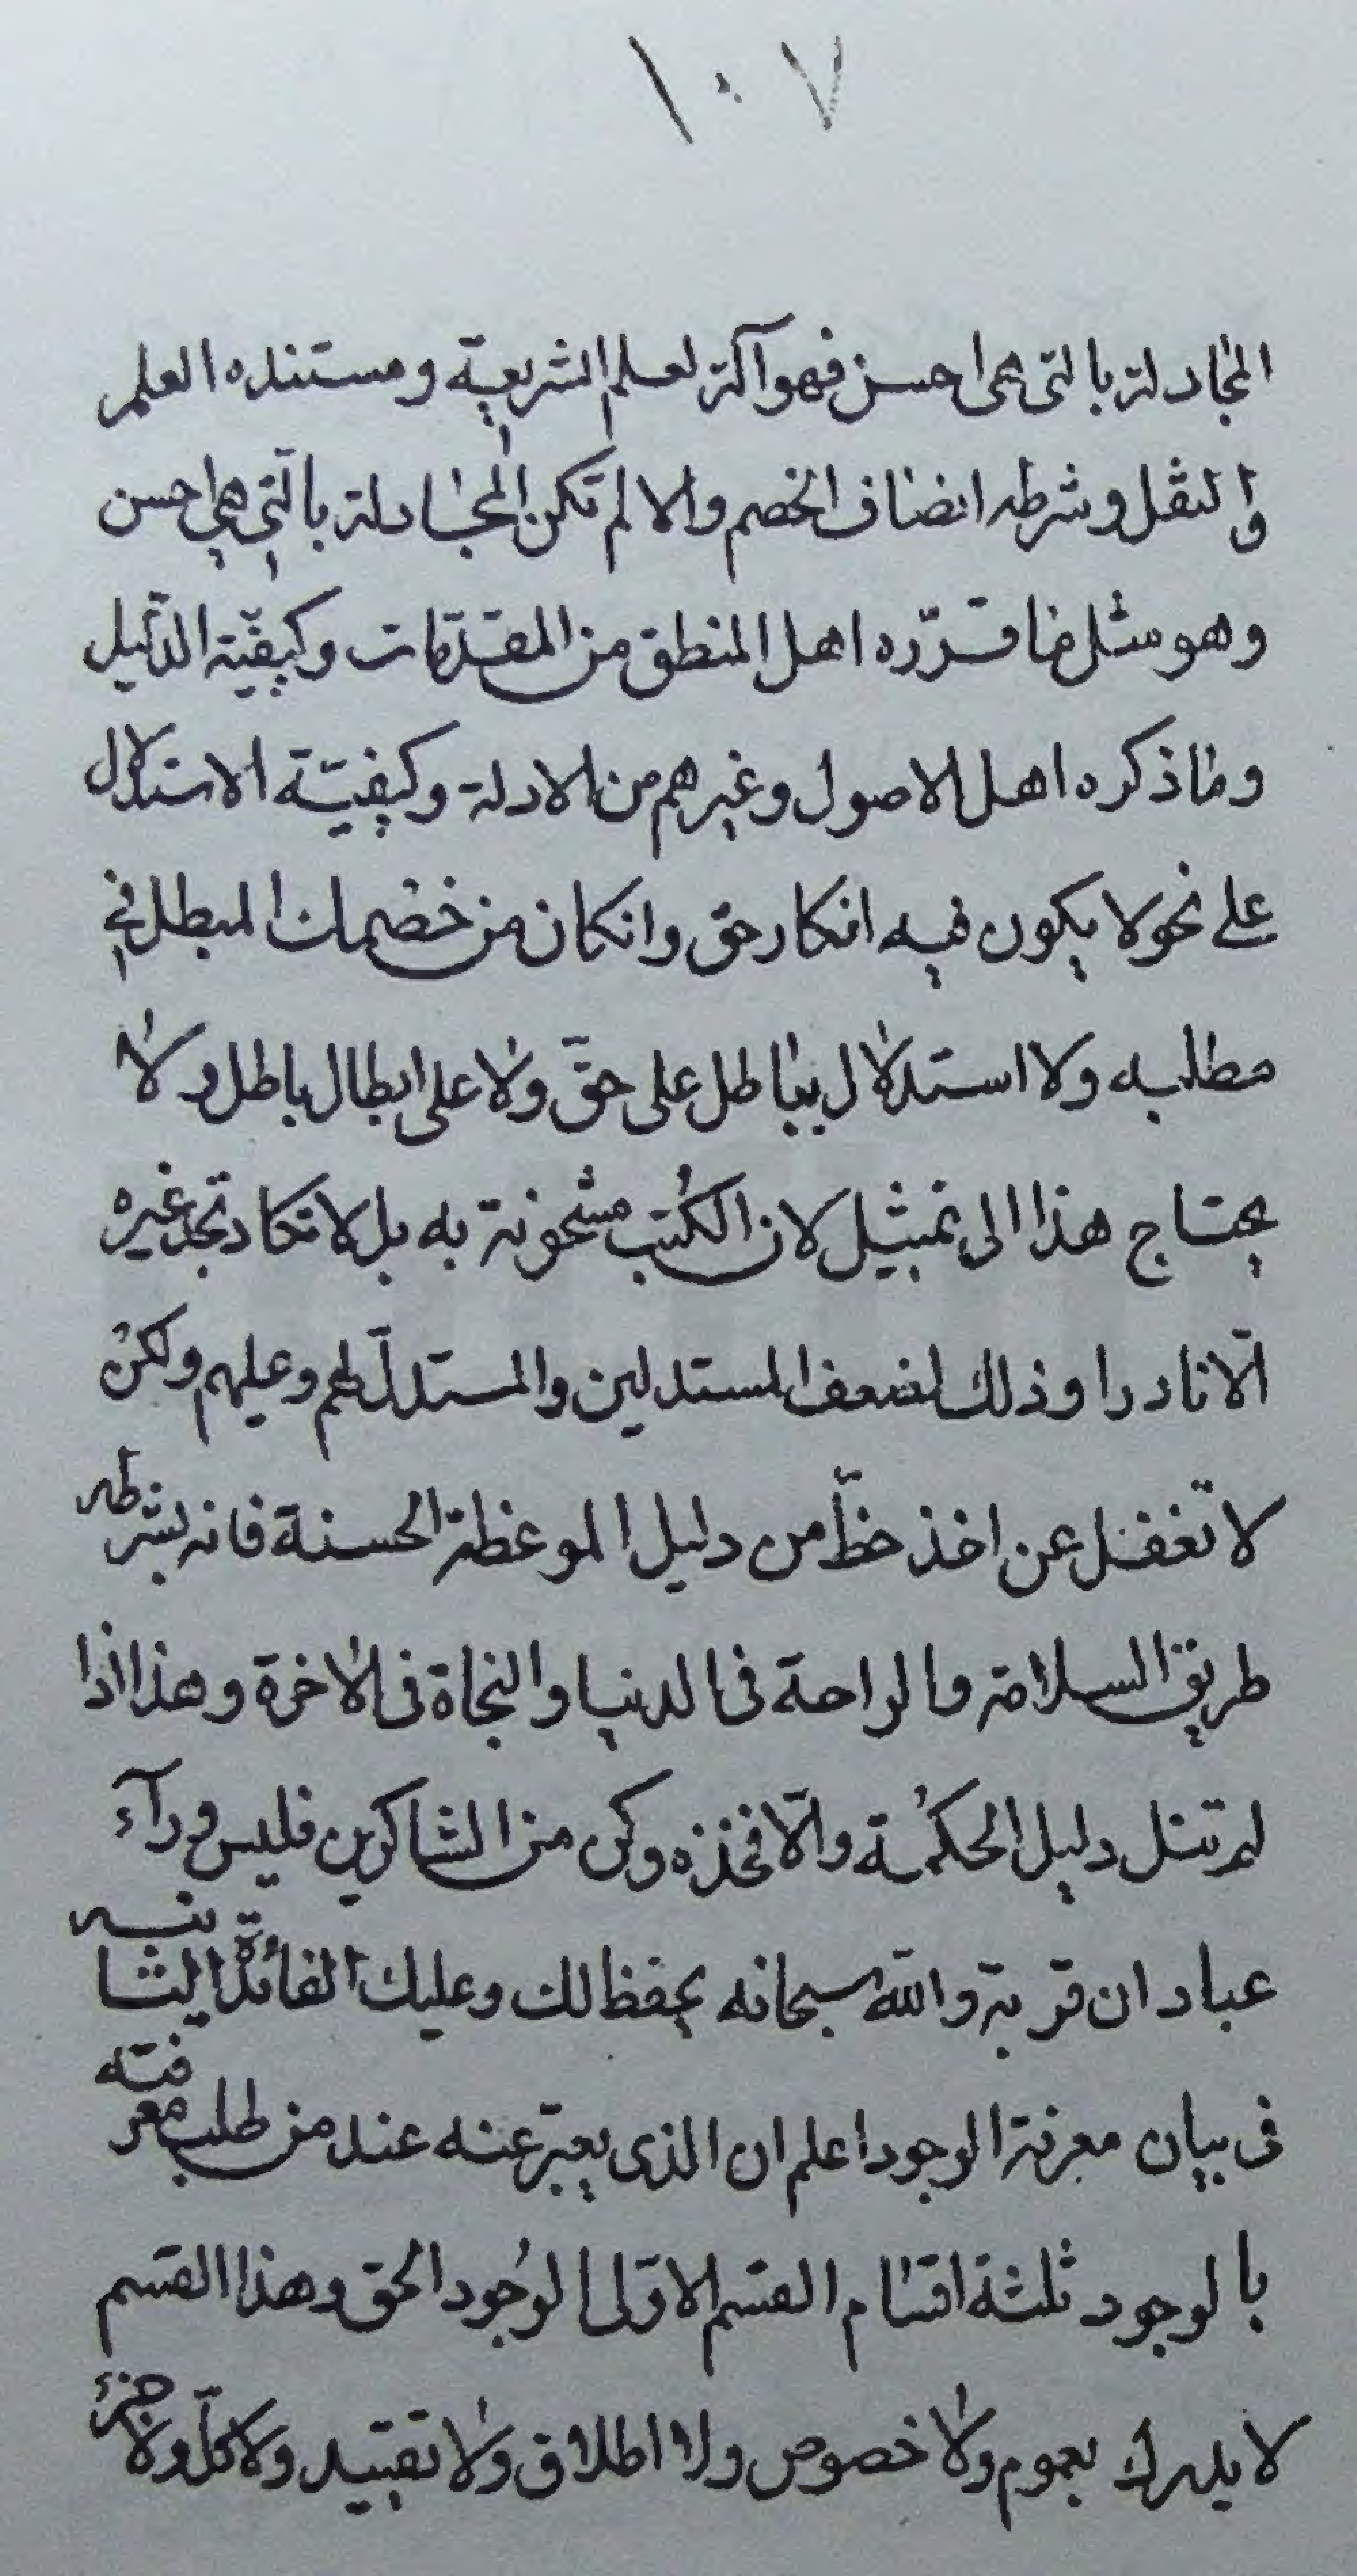 ١٠٧
المجادلة بالتى هى احسن فهو آلة لعلم الشريعة ومستنده العلم
والنقل وشرطه انصاف الخصم والا لم تكن المجادلة بالتى هى احسن
وهو مثل ما قرّره اهل المنطق من المقدّمات وكيفيّة الدّليل
وما ذكره اهل الاصول وغيرهم من الادلة وكيفيّة الاستدلال
على نحو لا يكون فيه انكار حق وانكان من خصمك المبطل فى
مطالبه ولا استدلال بباطل على حقّ ولا على ابطال باطل ولا
يحتاج هذا الى تمثيل لان الكتب مشحونة به بل لا تكاد تجد غيره
الّا نادرا وذلك لضعف المستدلين والمستدلّ لهم وعليهم ولكن
لا تغفل عن اخذ حظّ من دليل الموعظة الحسنة فانه بشرطه
طريق السلامة والراحة فى الدنيا والنجاة فى الاخرة وهذا اذا
لم تنل دليل الحكمة والّا فخذه وكن من الشاكرين فليس ورآء
عبادان قرية والله سبحانه يحفظ لك وعليك الفائدة الثانيه
فى بيان معرفة الوجود اعلم ان الذى يعبّر عنه عند من طلب معرفته
بالوجود ثلثة اقسام القسم الاوّل الوجود الحق وهذا القسم
لا يدرك بعموم ولا خصوص ولا اطلاق ولا تقييد ولا كلّ ولا جزء